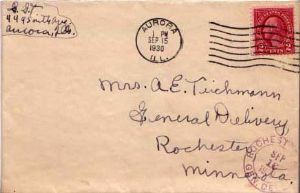 Aurora, Ill.
AURORA
1 PM
SEP 15
1930
ILL.
Mrs. A. E. Teichmann
General Delivery
Rochester
Minnesota
ROCHEST
SEP
GEN. DEL.